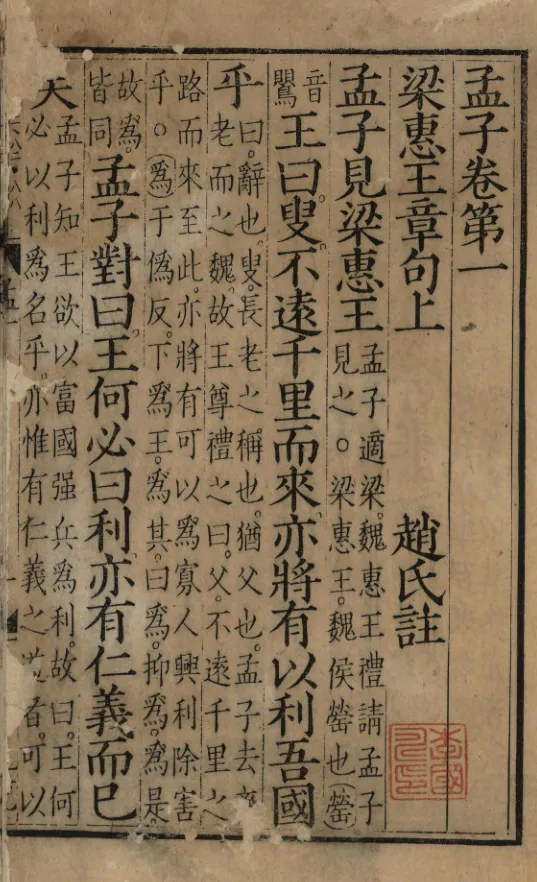 孟子卷第一
梁惠王章句上 趙氏註
孟子見梁惠王
孟子適梁。魏惠王禮請孟子
見之。○梁惠王。魏侯罃也(罃)
音
鸎
王曰叟。不遠千里而來亦將有以利吾國
乎
曰。辭也。叟。長老之稱也。猶父也。孟子去
老而之魏。故王尊禮之曰。父。不遠千里之
路而來至此。亦將有可以爲寡人興利除害
乎。○(爲)于僞反。下爲王。爲其。曰爲。抑爲。爲是
故爲。
皆同。
孟子對曰。王何必曰利。亦有仁義而已
孟子知王欲以富國强兵爲利。故曰。王何
必以利爲名乎。亦惟有仁義之者。可以